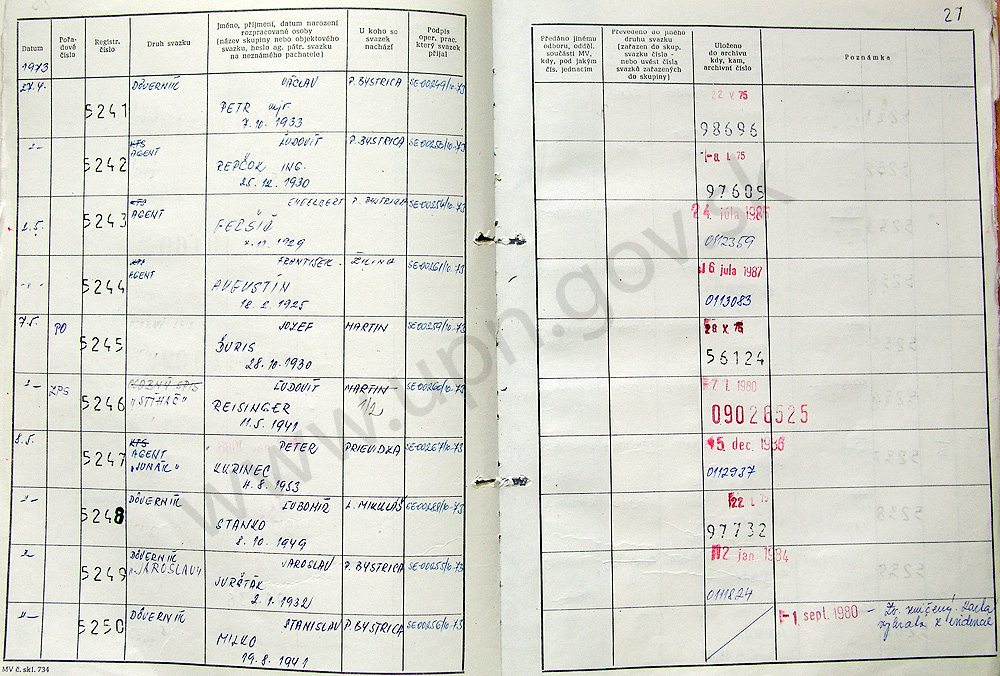 27
Datum
Pořa-
dové
číslo
Registr.
číslo
Druh svazku
Jméno, příjmení, datum narození
rozpracované osoby
(název skupiny nebo objektového
svazku, heslo ag. pátr. svazku
na neznámého pachatele)
U koho se
svazek
nachází
Podpis
oper. prac.
který svazek
přijal
Předáno jinému
odboru, odděl.
součásti MV,
kdy, pod jakým
čís. jednacím
Převedeno do jiného
druhu svazku
(zařazen do skup.
svazku číslo -
nebo uvést čísla
svazků zařazených
do skupiny)
Uloženo
do archivu
kdy, kam,
archivní číslo
Poznámka
1973
27.4. 5241 DÔVERNÍK VÁCLAV P. BYSTRICA SE-00249/10-73 22 V 75
PETR mjr.
7. 10. 1933
98696
5242 KTS AGENT ĽUDOVÍT P. BYSTRICA
REPČOK ING.
25. 12. 1930
75
97605
2.5. 5243 KTS AGENT ENGELBERT P. BYSTRICA 24. júla 1985
1929
0112359
5244 KTS AGENT FRANTIŠEK ŽILINA SE-00261/10-73 16 júla 1987
AUGUSTÍN
18. 2. 1925
0113083
7.5. PO 5245 JOZEF MARTIN SE-00259/10-73 28 X 75
ĎURIS
28. 10. 1930
56124
ZPS 5246 "STÍHAČ" ĽUDOVÍT MARTIN SE-00260/10-73 1980
1/2
REISINGER
11. 5. 1941
09028525
8.5. 5247 KTS AGENT "JUNÁK" PETER PRIEVIDZA SE-00267/10-73 15. dec. 1986
KURINEC
4. 8. 1953
0112937
5248 DÔVERNÍK ĽUBOMÍR L. MIKULÁŠ 22 I. 75
STANKO
8. 10. 1949
97732
5249 DÔVERNÍK "JAROSLAV" JAROSLAV P. BYSTRICA SE-00255/10-73 12 jan. 1984
JURŤÁK
2. 1. 1932
0111824
5250 DÔVERNÍK STANISLAV P. BYSTRICA SE-00256/10-73 -1. sept. 1980 - Zv. zničený. Karta
vybratá z evidencie
MILKO
19. 8. 1941
MV č. skl. 734
www.upn.gov.sk